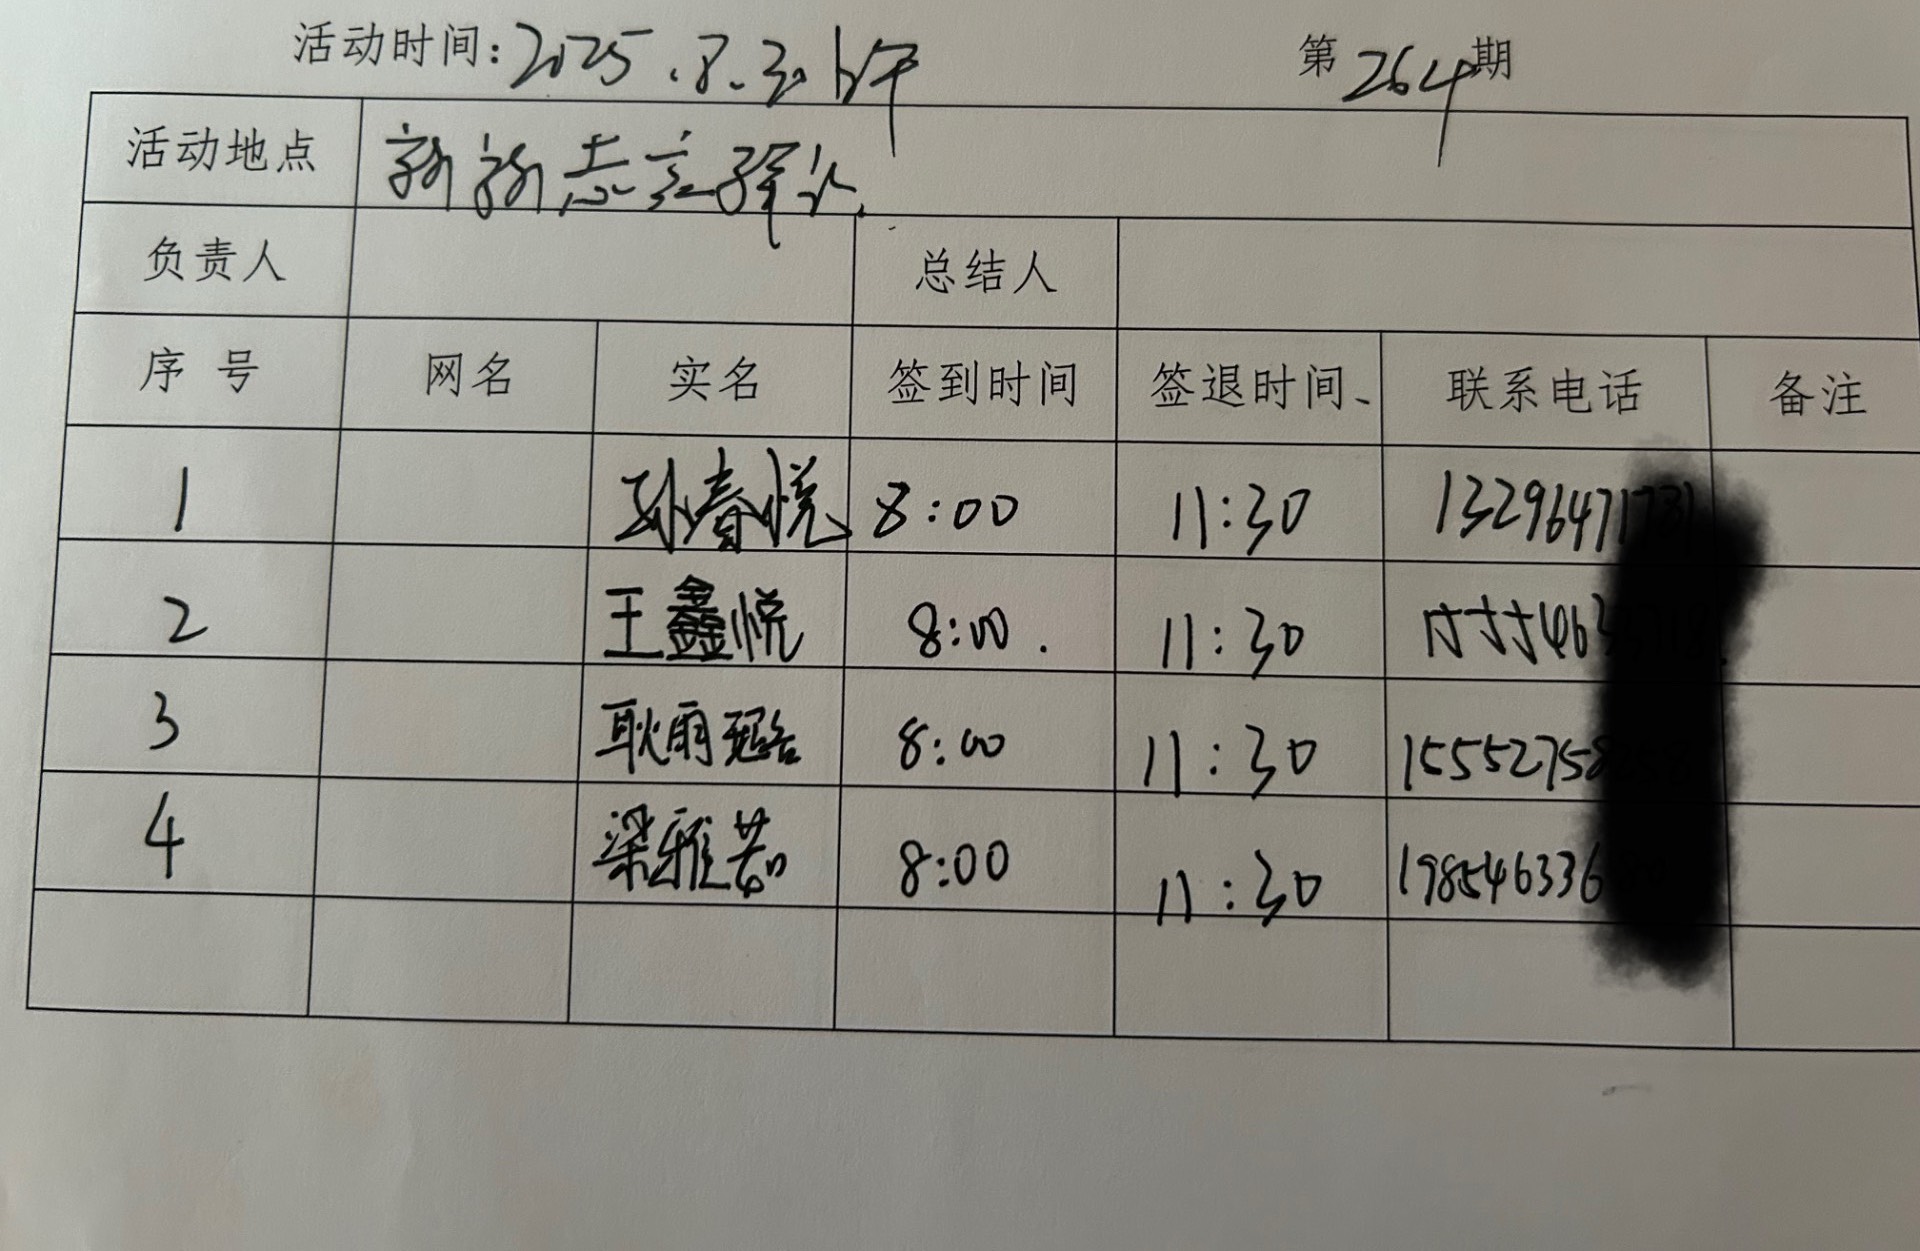 活动时间：2025.8.30上午 第264期
活动地点
负责人 总结人
序号 网名 实名 签到时间 签退时间、 联系电话 备注
1 孙春悦 8:00 11:30 13296471
2 王鑫悦 8:00. 11:30
3 耿雨 8:00 11:30 15552758
4 梁雅茹 8:00 11:30 198546336